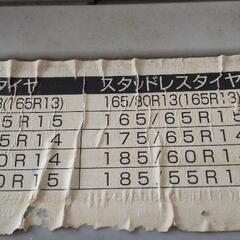 タイヤ スタッドレスタイヤ
(165R13) 165/80R13(165R13)
5R15 165/65R15
5R14 175/65R14
0R14 185/60R14
0R15 185/55R15